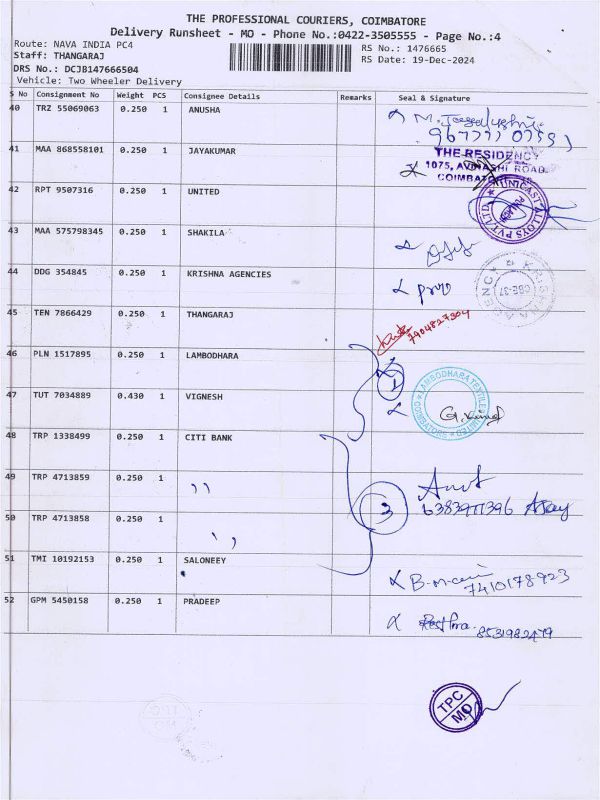 THE PROFESSIONAL COURIERS, COIMBATORE
Delivery Runsheet - MO - Phone No.:0422-3505555 - Page No.:4
Route: NAVA INDIA PC4
Staff: THANGARAJ
DRS No.: DCJB147666504
Vehicle: Two Wheeler Delivery
RS No.: 1476665
RS Date: 19-Dec-2024
S No Consignment No Weight PCS Consignee Details Remarks Seal & Signature
40 TRZ 55069063 0.250 1 ANUSHA
41 MAA 868558101 0.250 1 JAYAKUMAR
THE RESIDENCY
1075, AVINASHI ROAD
COIMBATORE
42 RPT 9507316 0.250 1 UNITED
UNICAST ALLOYS PVT LTD
43 MAA 575798345 0.250 1 SHAKILA
44 DDG 354845 0.250 1 KRISHNA AGENCIES
KRISHNA AGENCY
CBE-37
45 TEN 7866429 0.250 1 THANGARAJ
7904827304
46 PLN 1517895 0.250 1 LAMBODHARA
1
LAMBODHARA TEXTILE LIMITED
COIMBATORE
47 TUT 7034889 0.430 1 VIGNESH
48 TRP 1338499 0.250 1 CITI BANK
49 TRP 4713859 0.250 1 ,,
3
6383911396
50 TRP 4713858 0.250 1 ,,
51 TMI 10192153 0.250 1 SALONEEY
7410178923
52 GPM 5450158 0.250 1 PRADEEP
8531982479
TPC
MO